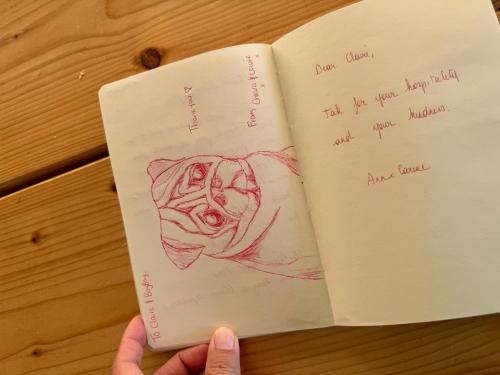 To Claire & 
Thank you ♡
From Chiara & Louise
x x
Dear Claire,
Tak for your hospitality
and your kindness.
Anne Carine